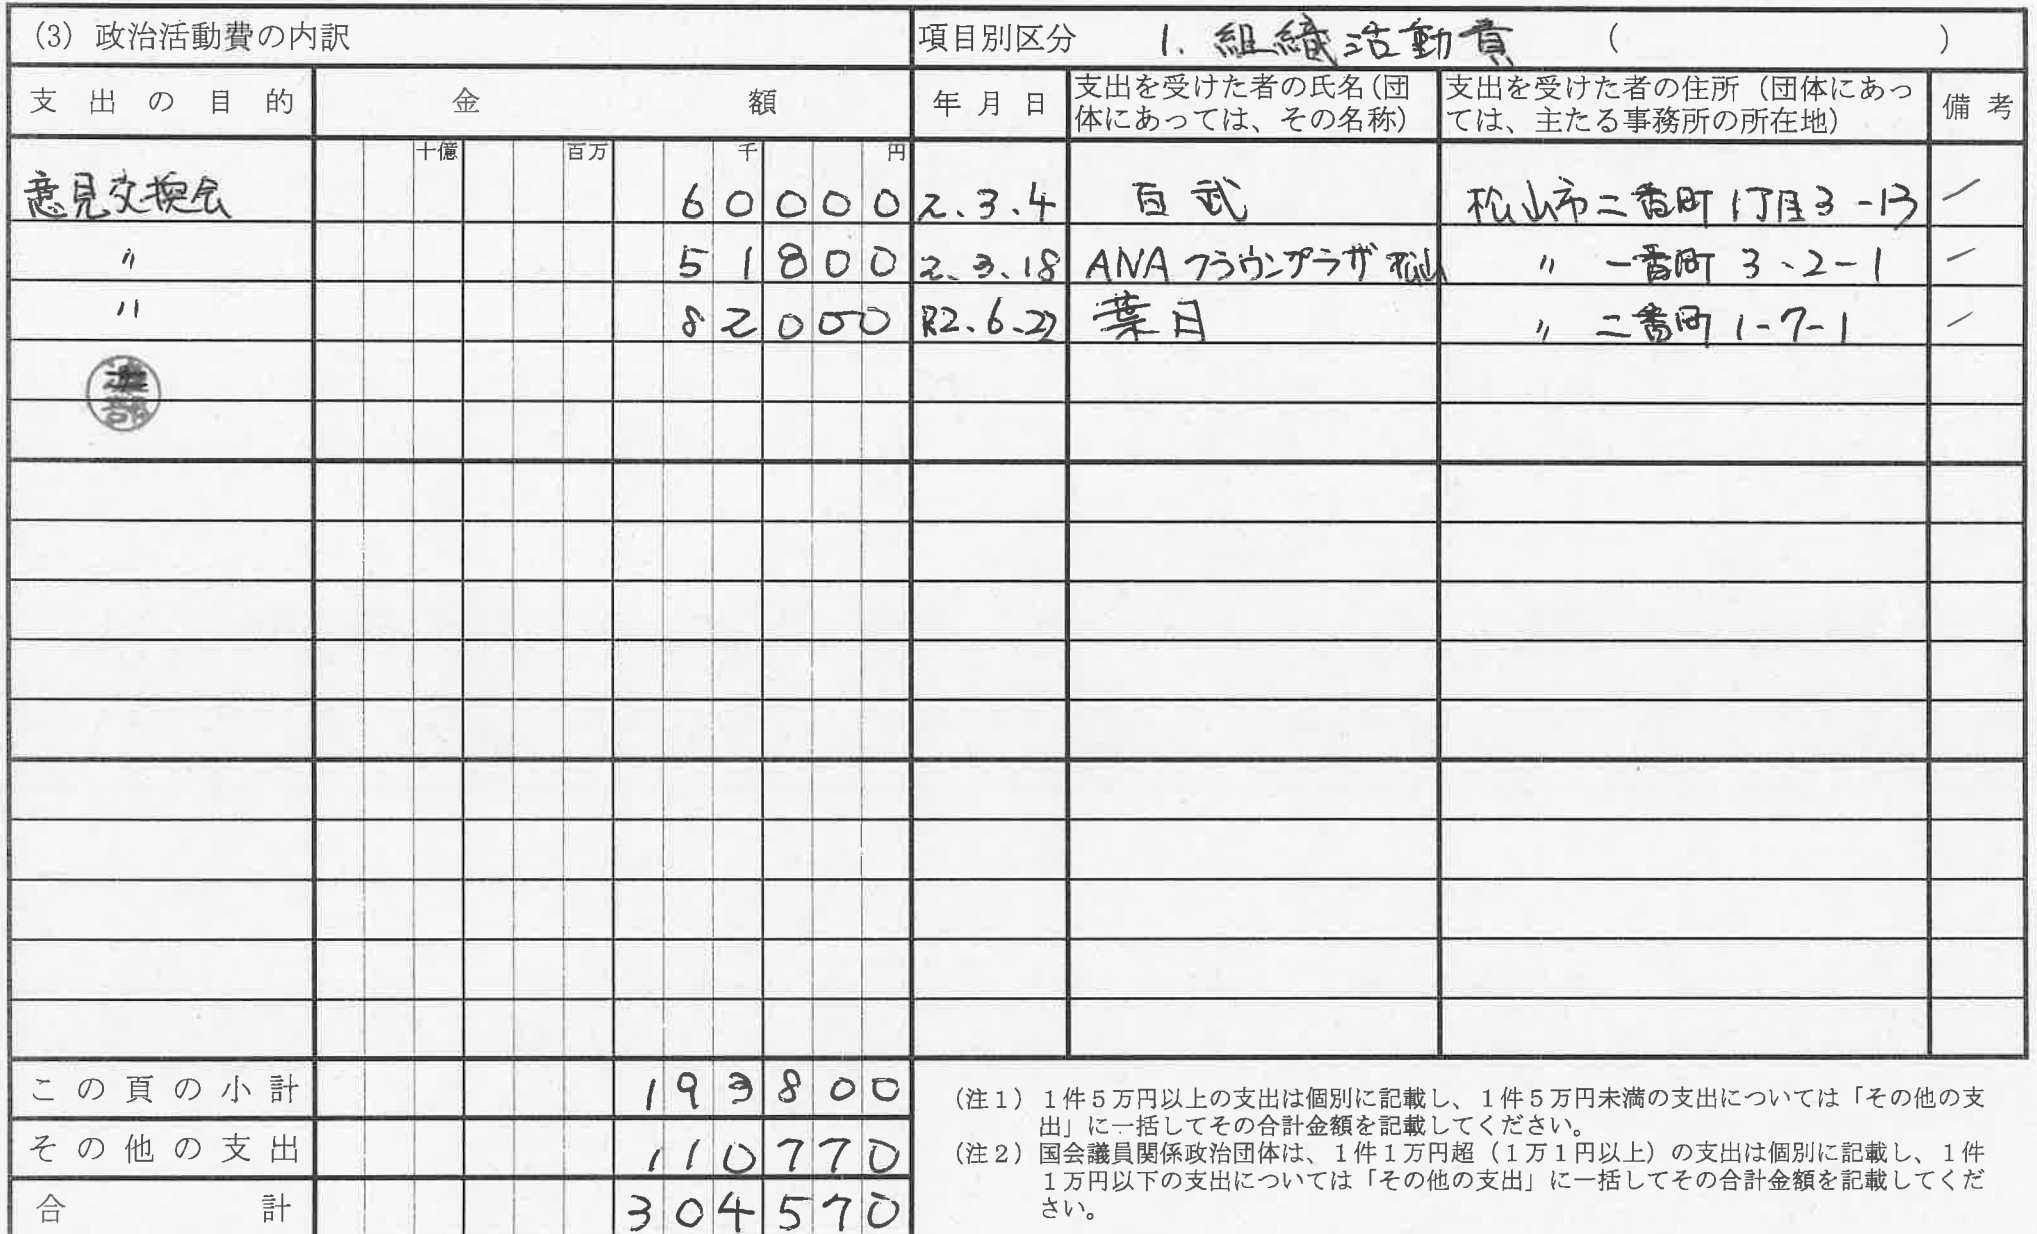 (3) 政治活動費の内訳 項目別区分 1. 組織活動費 ( )
支出の目的 金額 年月日 支出を受けた者の氏名(団体にあっては、その名称) 支出を受けた者の住所(団体にあっては、主たる事務所の所在地) 備考
十億 百万 千 円
意見交換会 60000 2.3.4 百武 松山市二番町1丁目3-13
〃 51800 2.3.18 ANAクラウンプラザ松山 〃 一番町3-2-1
〃 82000 R2.6.22 葉月 〃 二番町1-7-1
この頁の小計 193800
その他の支出 110770
合計 304570
(注1) 1件5万円以上の支出は個別に記載し、1件5万円未満の支出については「その他の支
出」に一括してその合計金額を記載してください。
(注2) 国会議員関係政治団体は、1件1万円超(1万1円以上)の支出は個別に記載し、1件
1万円以下の支出については「その他の支出」に一括してその合計金額を記載してくだ
さい。